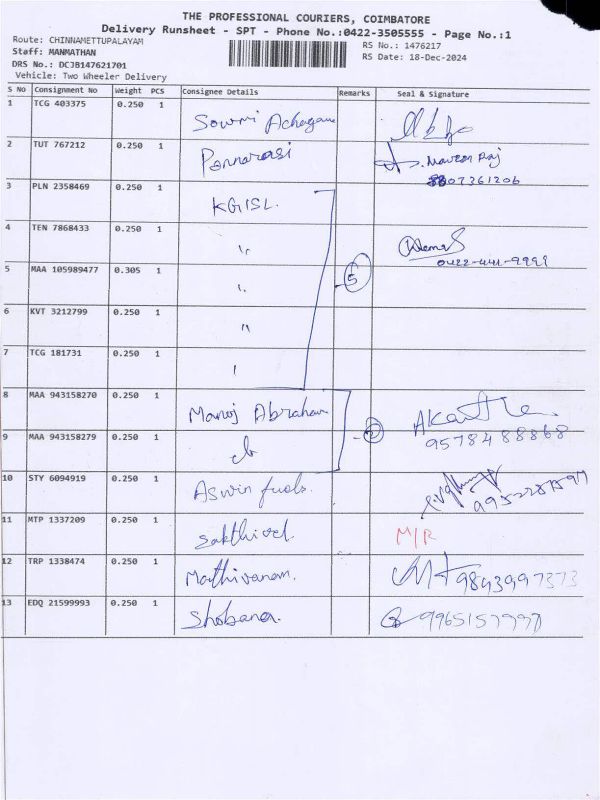 THE PROFESSIONAL COURIERS, COIMBATORE
Delivery Runsheet - SPT - Phone No.:0422-3505555 - Page No.:1
Route: CHINNAMETTUPALAYAM
Staff: MANMATHAN
DRS No.: DCJB147621701
Vehicle: Two Wheeler Delivery
RS No.: 1476217
RS Date: 18-Dec-2024
S No Consignment No Weight PCS Consignee Details Remarks Seal & Signature
1 TCG 403375 0.250 1 Sowmi
2 TUT 767212 0.250 1 Ponnarasi Naveen Raj
07361206
3 PLN 2358469 0.250 1 KGISL.
4 TEN 7868433 0.250 1 "
0422-441-9999
5 MAA 105989477 0.305 1 " 5
6 KVT 3212799 0.250 1 "
7 TCG 181731 0.250 1 "
8 MAA 943158270 0.250 1 Manoj Abraham
9 MAA 943158279 0.250 1 do 2 9578488868
10 STY 6094919 0.250 1 Aswin fuels.
11 MTP 1337209 0.250 1 Sakthivel. M/R
12 TRP 1338474 0.250 1 Mathivanam. 9843997373
13 EDQ 21599993 0.250 1 Shobana.